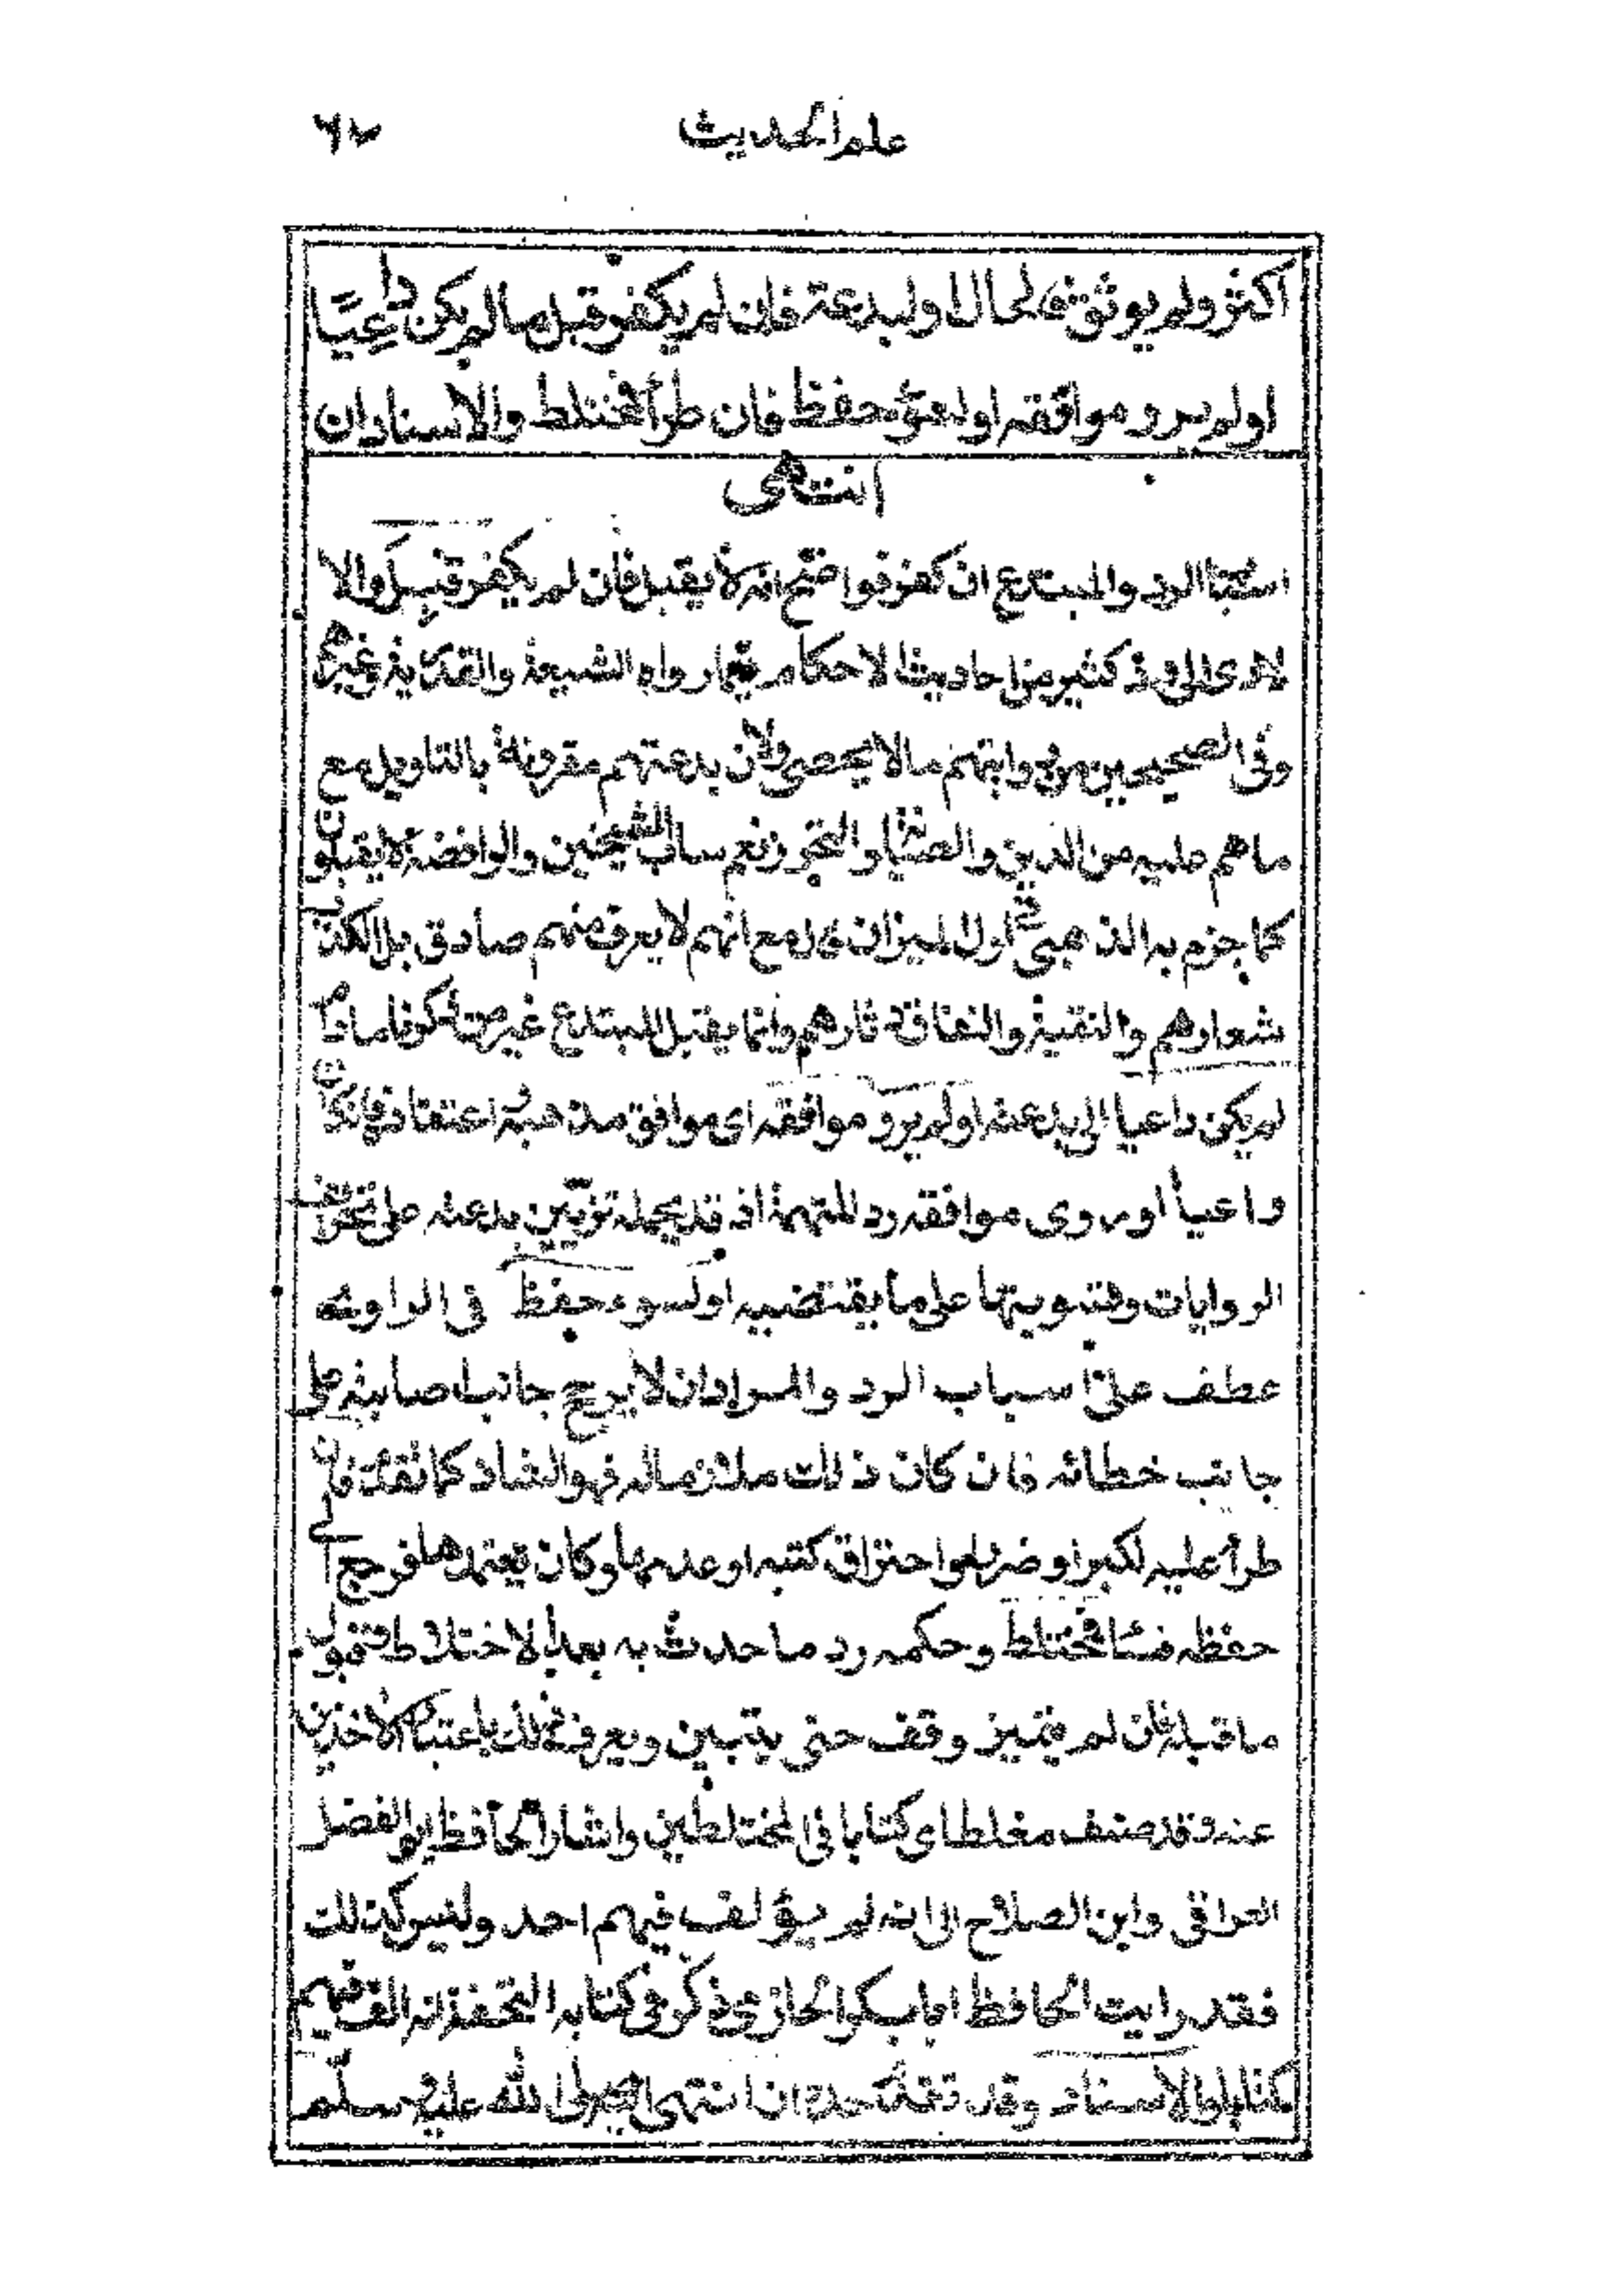 علم الحديث ٦٧
اكثر ولم يوثق فالحال او لبدعة فان لم يكفر قبل مالم يكن داعيا
او لم يرو موافقه او لسوء حفظ فان طرأ فمختلط والاسناد ان
انتهى
اسباب الرد والمبتدع ان كفر فواضح انه لا يقبل فان لم يكفر قبل والا
لادى الى رد كثير من احاديث الاحكام مما رواه الشيعة والقدرية وغيرهم
وفى الصحيحين من روايتهم مالا يحصى ولان بدعتهم مقرونة بالتاويل مع
ماهم عليه من الدين والصيانة والتحرز نعم ساب الشيخين والرافضة لا يقبلون
كما جزم به الذهبى فى اول الميزان مع انهم لا يعرف منهم صادق بل الكذب
شعارهم والتقية والنفاق دثارهم وانما يقبل المبتدع غير من ذكرنا مادام
لم يكن داعيا الى بدعته او لم يرو موافقه اى موافق مذهبه اعتقاده فان كان
داعيا او روى موافقه رد للتهمة اذ قد يحمله تزيين بدعته على تحريف
الروايات وتسويتها على ما يقتضيه او لسوء حفظ فى الراوى
عطف على اسباب الرد والمراد ان لا يرجح جانب اصابته على
جانب خطائه فان كان ذلك ملازما له فهو الشاذ كما تقدم فان
طرأ عليه لكبر او ضرر او احتراق كتبه او عدمها وكان يعتمدها فرجع الى
حفظه فساء فمختلط وحكمه رد ما حدث به بعد الاختلاط وقبول
ما قبله فان لم يتميز وقف حتى يتبين ويعرف ذلك باعتبار الاخذين
عنه وقد صنف مغلطاى كتابا فى المختلطين واشار الحافظ ابو الفضل
العراقى وابن الصلاح الى انه لم يؤلف فيهم احد وليس كذلك
فقد رايت الحافظ ابا بكر الحازمى ذكر فى كتابه التحفة انه الف فيهم
كتابا والاسناد وقد تقدم حده ان انتهى اليه صلى الله عليه وسلم